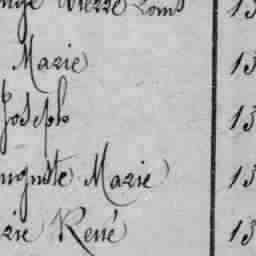 Pierre Louis 13
Marie 13
Joseph 13
Auguste Marie 13
rie René 13